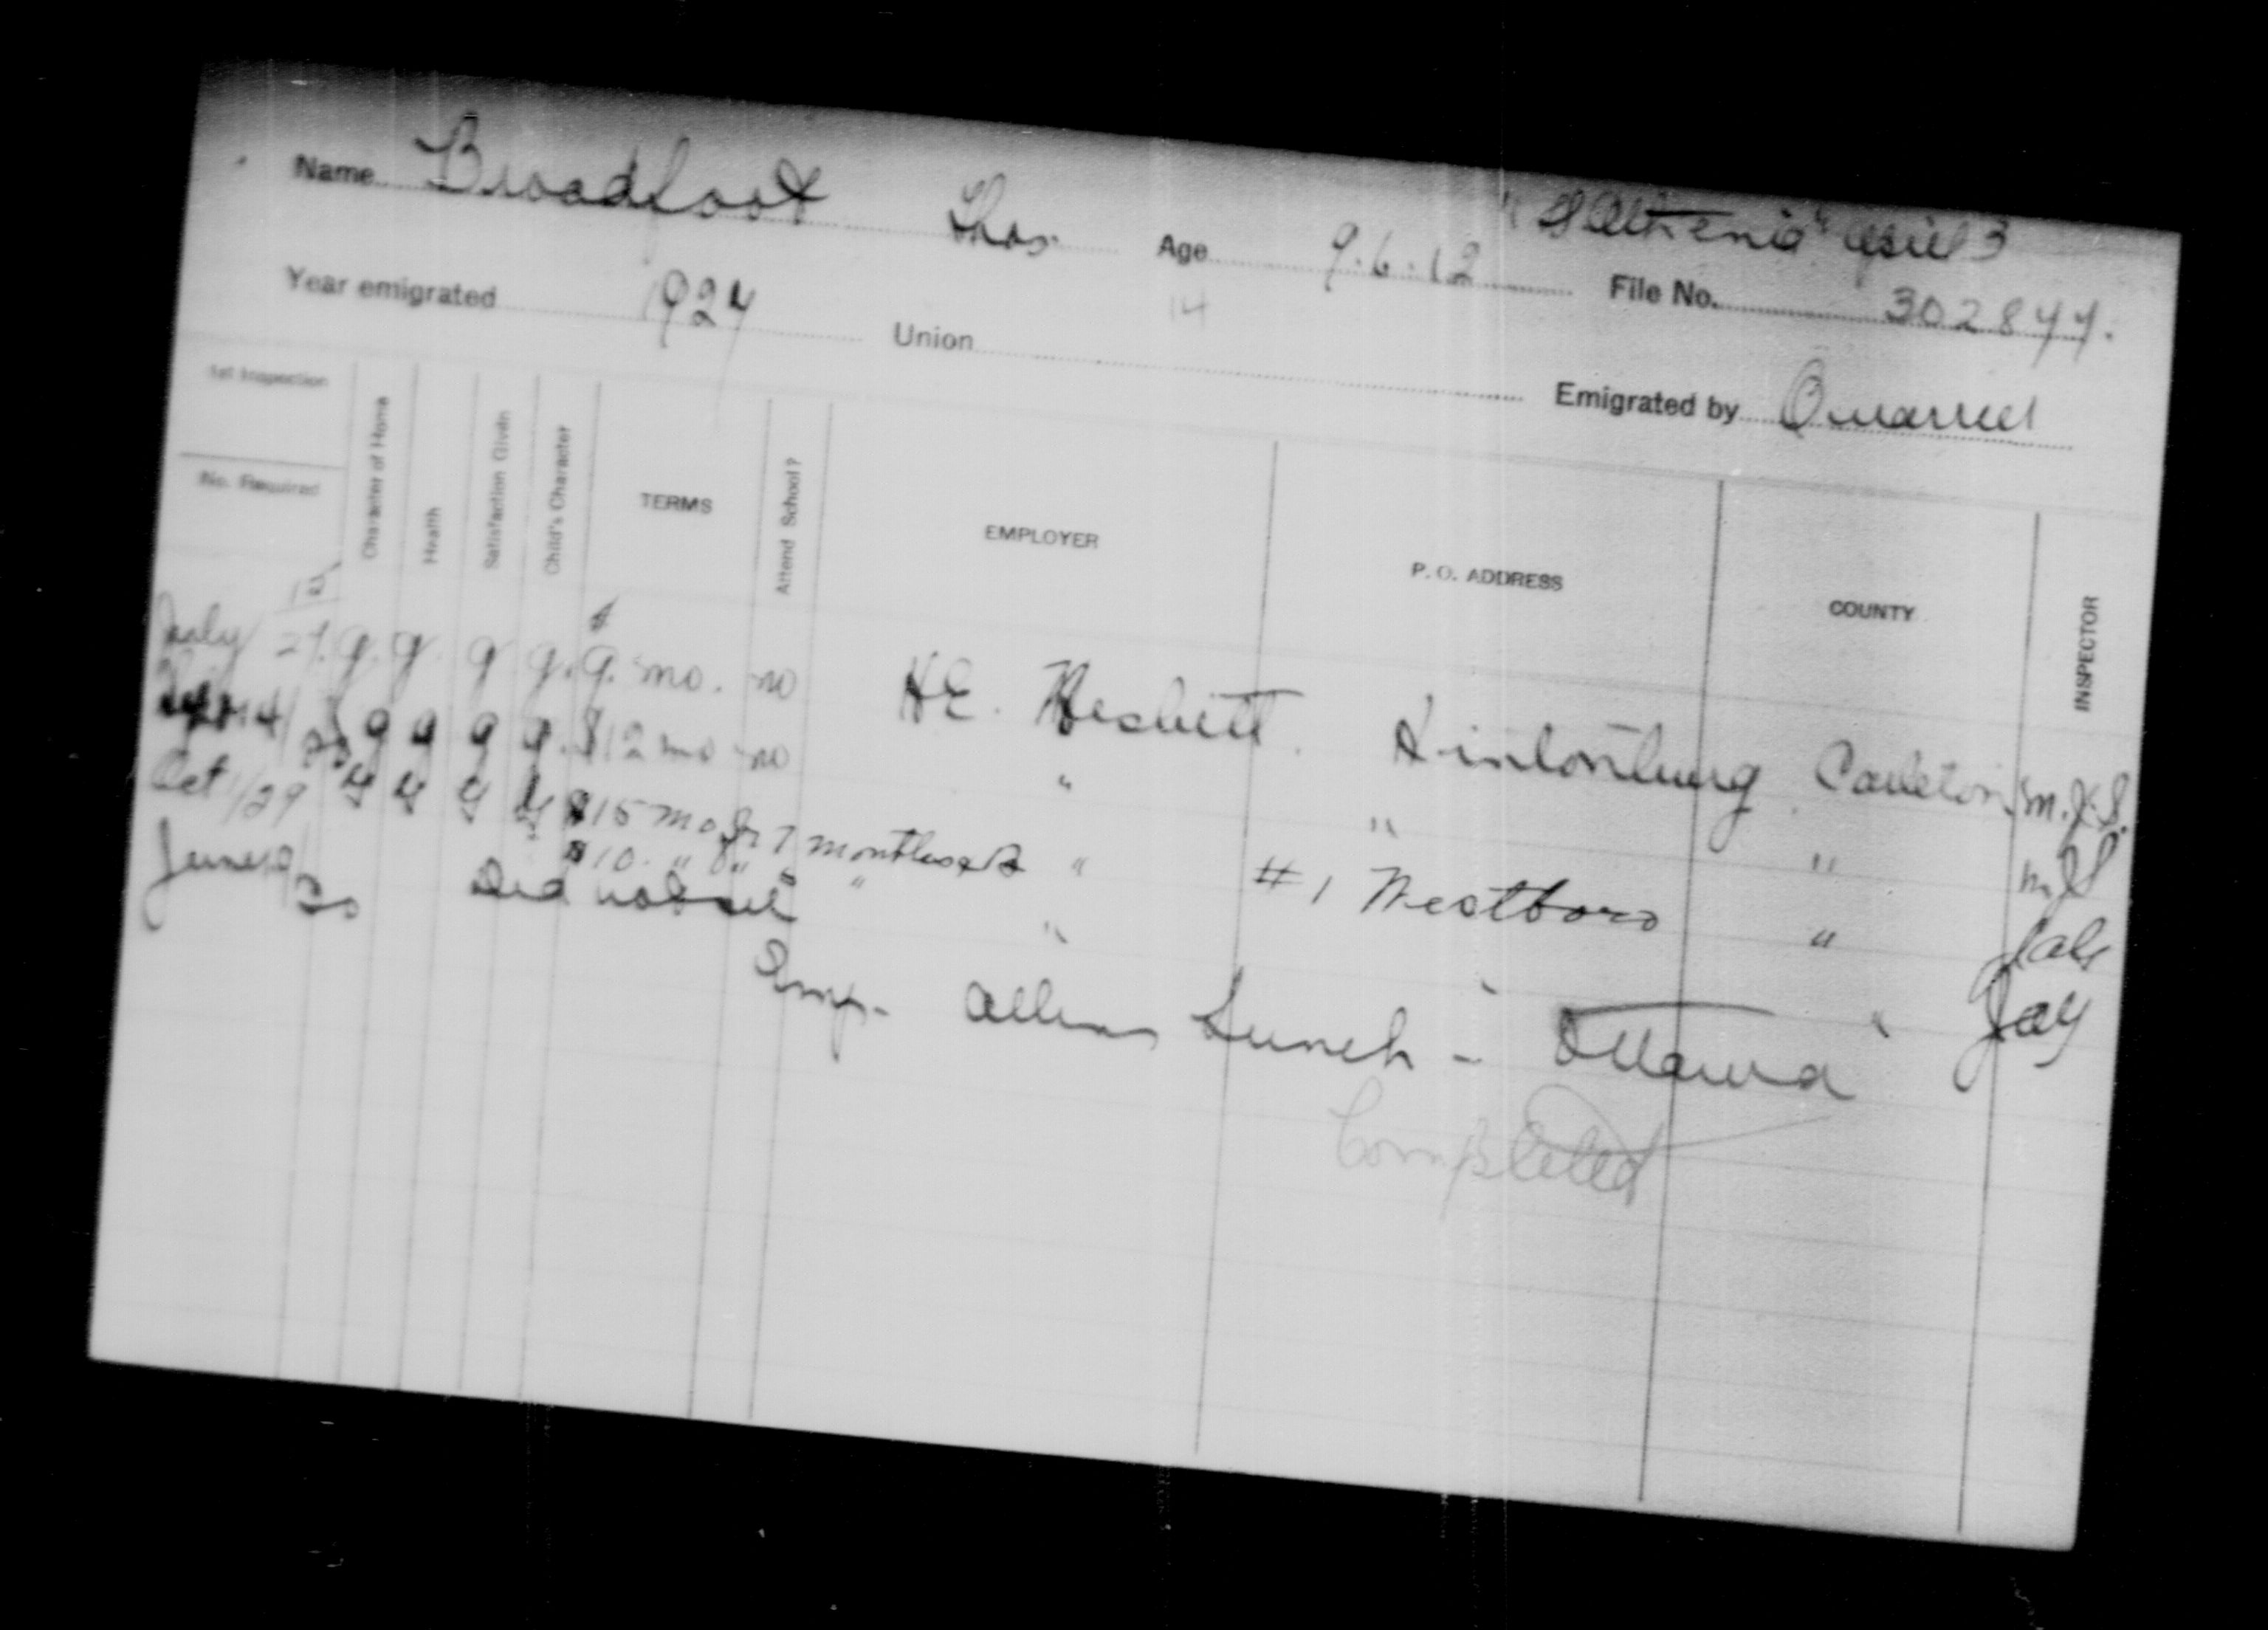 Name Broadfoot Thos. Age 9.6.12 "Athenia" April 3
14
File No. 302844.
Year emigrated 1924 Union Emigrated by Quarrier
1st Inspection
No. Required
Character of Home
Health
Satisfaction Given
Child's Character
TERMS
Attend School?
EMPLOYER
P. O. ADDRESS
COUNTY
INSPECTOR
July 27. g. g. g g. $9. mo. no H.E. Nesbitt. Kinburn Carleton
14 g g g g. $12 mo no " " "
Oct 1/29 G G G G $15 mo for 7 months & " #1 Westboro "
$10. " " 5 "
June 30 Did not see "
Emp. Allens Lunch - Ottawa
Completed